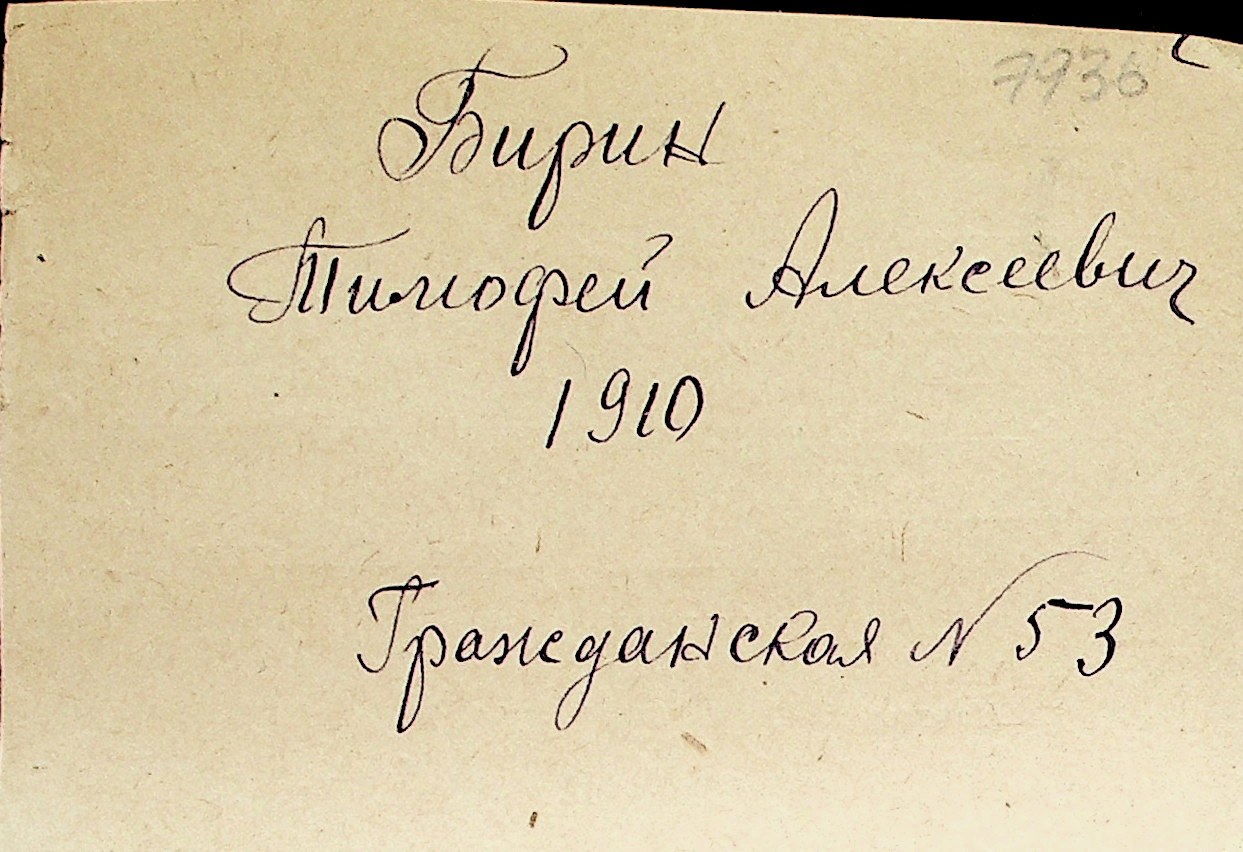 7936
Бирин
Тимофей Алексеевич
1910
Гражданская N 53